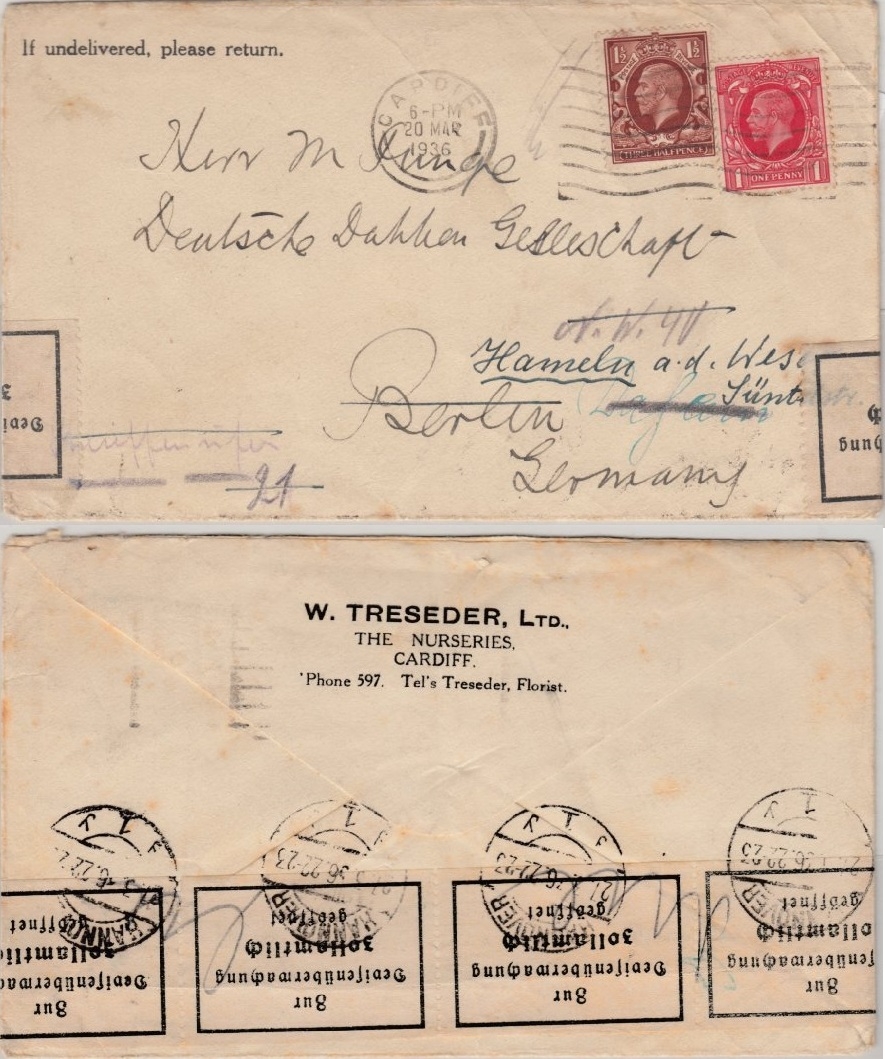 If undelivered, please return.
CARDIFF
6-PM
20 MAR
1936
1½ 1½
THREE HALFPENCE
1 ONE PENNY 1
Herr M
Deutsche Dahlien Gesellschaft
N.W. 40
Hameln a.d. Wes
Sünt
Berlin
Germany
21
W. TRESEDER, LTD.,
THE NURSERIES,
CARDIFF.
'Phone 597. Tel's Treseder, Florist.
HANNOVER
1 y
21.3.36.22-23
Zur
Devisenüberwachung
zollamtlich
geöffnet
Zur
Devisenüberwachung
zollamtlich
geöffnet
Zur
Devisenüberwachung
zollamtlich
geöffnet
Zur
isenüberwachung
ollamtlich
geöffnet